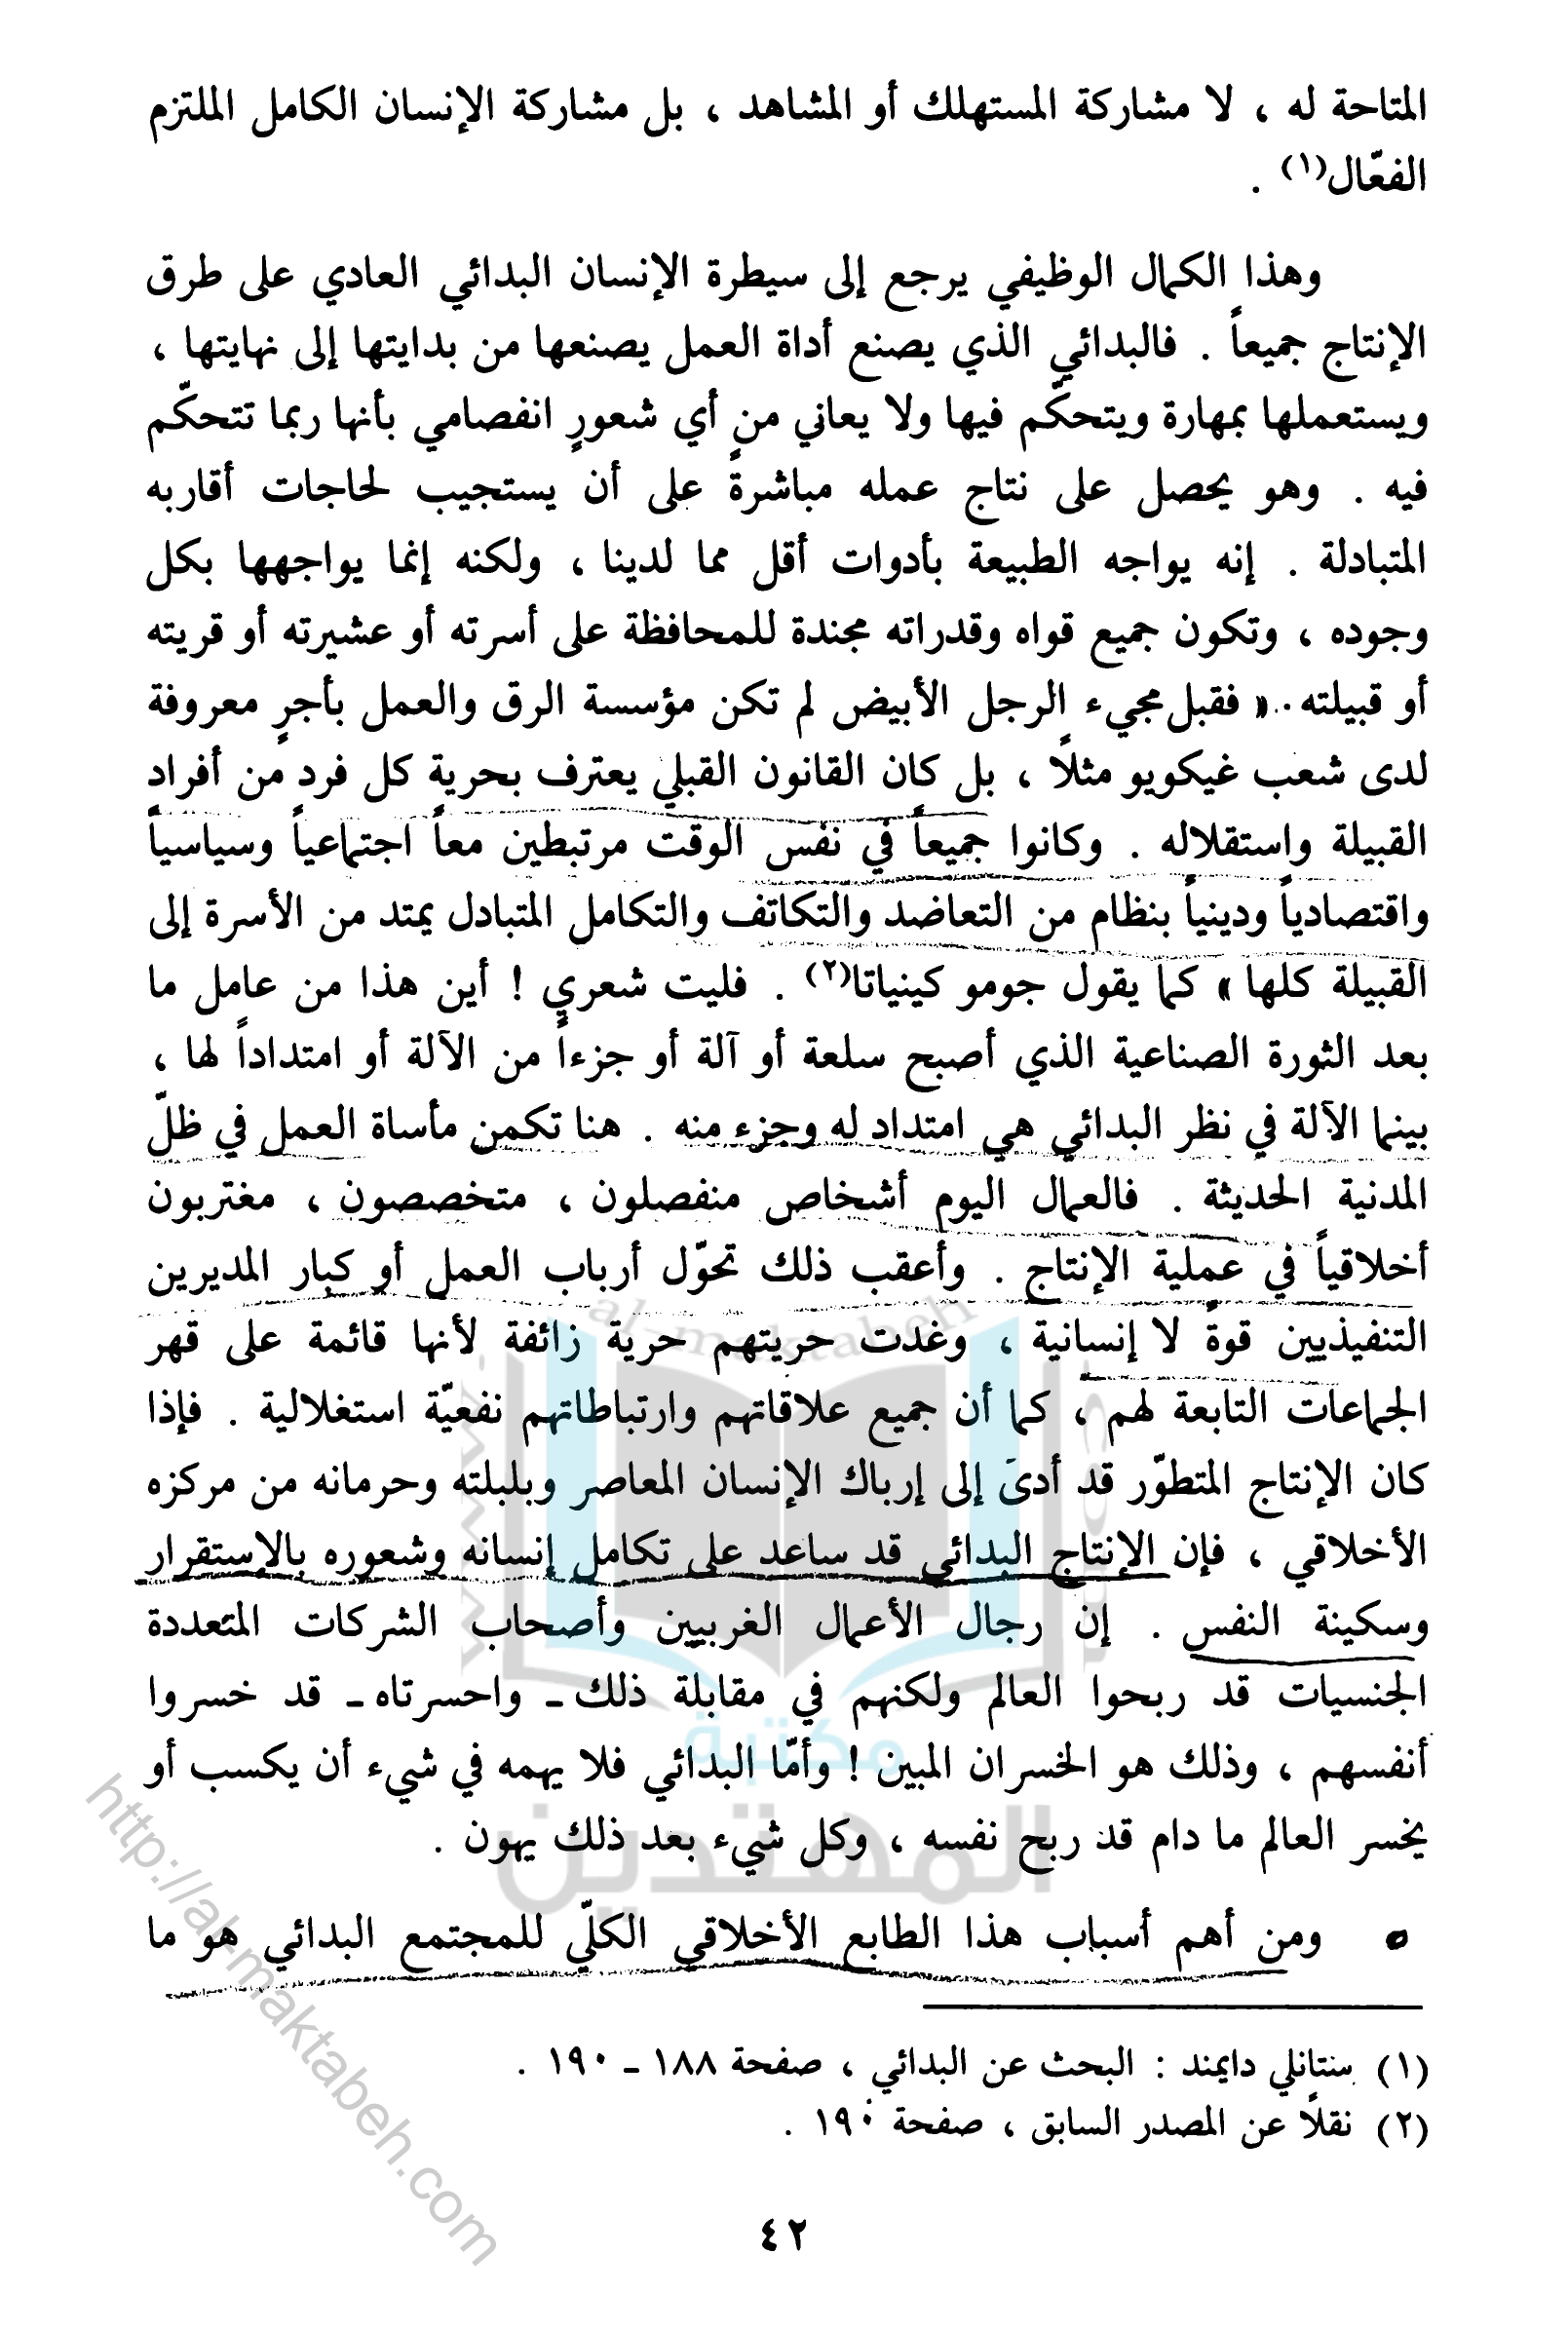 المتاحة له ، لا مشاركة المستهلك أو المشاهد ، بل مشاركة الإنسان الكامل الملتزم
الفعّال(١) .
وهذا الكمال الوظيفي يرجع إلى سيطرة الإنسان البدائي العادي على طرق
الإنتاج جميعاً . فالبدائي الذي يصنع أداة العمل يصنعها من بدايتها إلى نهايتها ،
ويستعملها بمهارة ويتحكّم فيها ولا يعاني من أي شعورٍ انفصامي بأنها ربما تتحكّم
فيه . وهو يحصل على نتاج عمله مباشرةً على أن يستجيب لحاجات أقاربه
المتبادلة . إنه يواجه الطبيعة بأدوات أقل مما لدينا ، ولكنه إنما يواجهها بكل
وجوده ، وتكون جميع قواه وقدراته مجندة للمحافظة على أسرته أو عشيرته أو قريته
أو قبيلته.. « فقبل مجيء الرجل الأبيض لم تكن مؤسسة الرق والعمل بأجرٍ معروفة
لدى شعب غيكويو مثلاً ، بل كان القانون القبلي يعترف بحرية كل فرد من أفراد
القبيلة واستقلاله . وكانوا جميعاً في نفس الوقت مرتبطين معاً اجتماعياً وسياسياً
واقتصادياً ودينياً بنظام من التعاضد والتكاتف والتكامل المتبادل يمتد من الأسرة إلى
القبيلة كلها » كما يقول جومو كينياتا(٢) . فليت شعري ! أين هذا من عامل ما
بعد الثورة الصناعية الذي أصبح سلعة أو آلة أو جزءاً من الآلة أو امتداداً لها ،
بينما الآلة في نظر البدائي هي امتداد له وجزء منه . هنا تكمن مأساة العمل في ظلّ
المدنية الحديثة . فالعمال اليوم أشخاص منفصلون ، متخصصون ، مغتربون
أخلاقياً في عملية الإنتاج . وأعقب ذلك تحوّل أرباب العمل أو كبار المديرين
التنفيذيين قوةً لا إنسانية ، وغدت حريتهم حرية زائفة لأنها قائمة على قهر
الجماعات التابعة لهم ، كما أن جميع علاقاتهم وارتباطاتهم نفعيّة استغلالية . فإذا
كان الإنتاج المتطوّر قد أدىَ إلى إرباك الإنسان المعاصر وبلبلته وحرمانه من مركزه
الأخلاقي ، فإن الإنتاج البدائي قد ساعد على تكامل إنسانه وشعوره بالإستقرار
وسكينة النفس . إن رجال الأعمال الغربيين وأصحاب الشركات المتعددة
الجنسيات قد ربحوا العالم ولكنهم في مقابلة ذلك ـ واحسرتاه ـ قد خسروا
أنفسهم ، وذلك هو الخسران المبين ! وأمّا البدائي فلا يهمه في شيء أن يكسب أو
يخسر العالم ما دام قد ربح نفسه ، وكل شيء بعد ذلك يهون .
ومن أهم أسباب هذا الطابع الأخلاقي الكلّي للمجتمع البدائي هو ما
(١) ستانلي دايمند : البحث عن البدائي ، صفحة ١٨٨ ـ ١٩٠ .
(٢) نقلاً عن المصدر السابق ، صفحة ١٩٠ .
٤٢
al-maktabeh
مكتبة
المهتدين
http://al-maktabeh.com